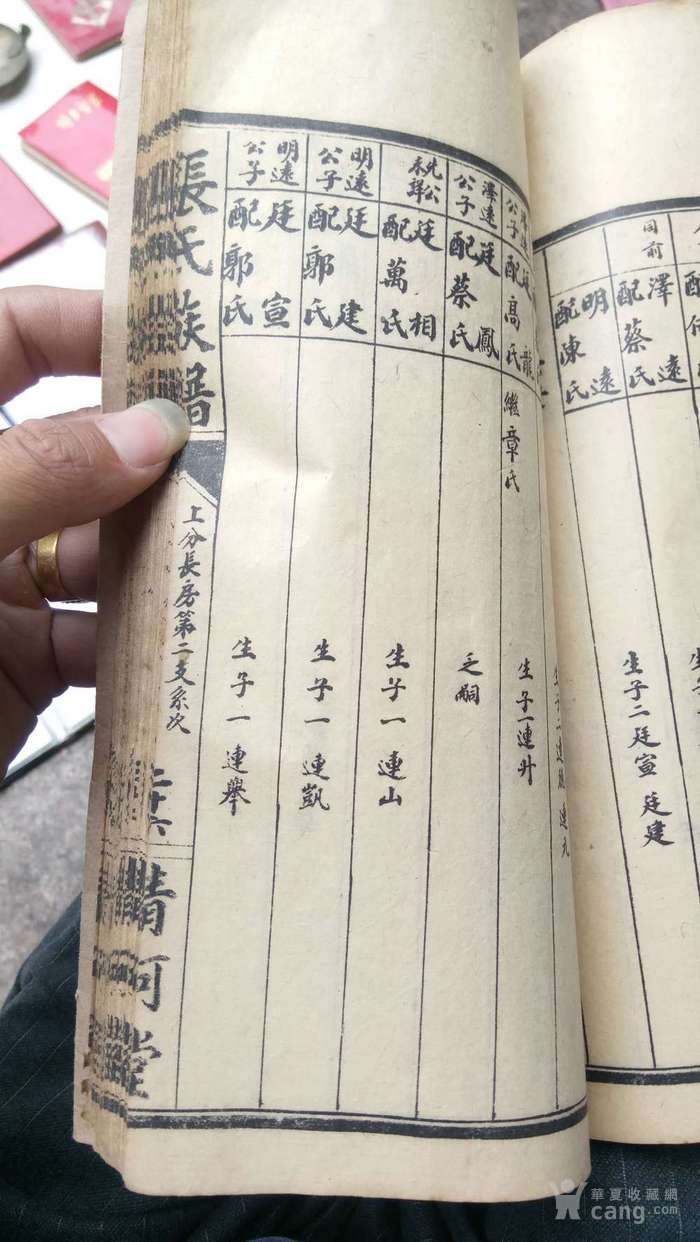 同前
澤遠
配蔡氏
明遠
配陳氏
生子二廷宣 廷建
公子
配高氏
繼章氏
生子一連升
澤遠
公子
廷鳳
配蔡氏
乏嗣
先公
未詳
廷相
配萬氏
生子一連山
明遠
公子
廷建
配郭氏
生子一連凱
明遠
公子
廷宣
配郭氏
生子一連舉
張氏族譜
上分長房第二支系次
二十六
清河堂
華夏收藏網
cang.com